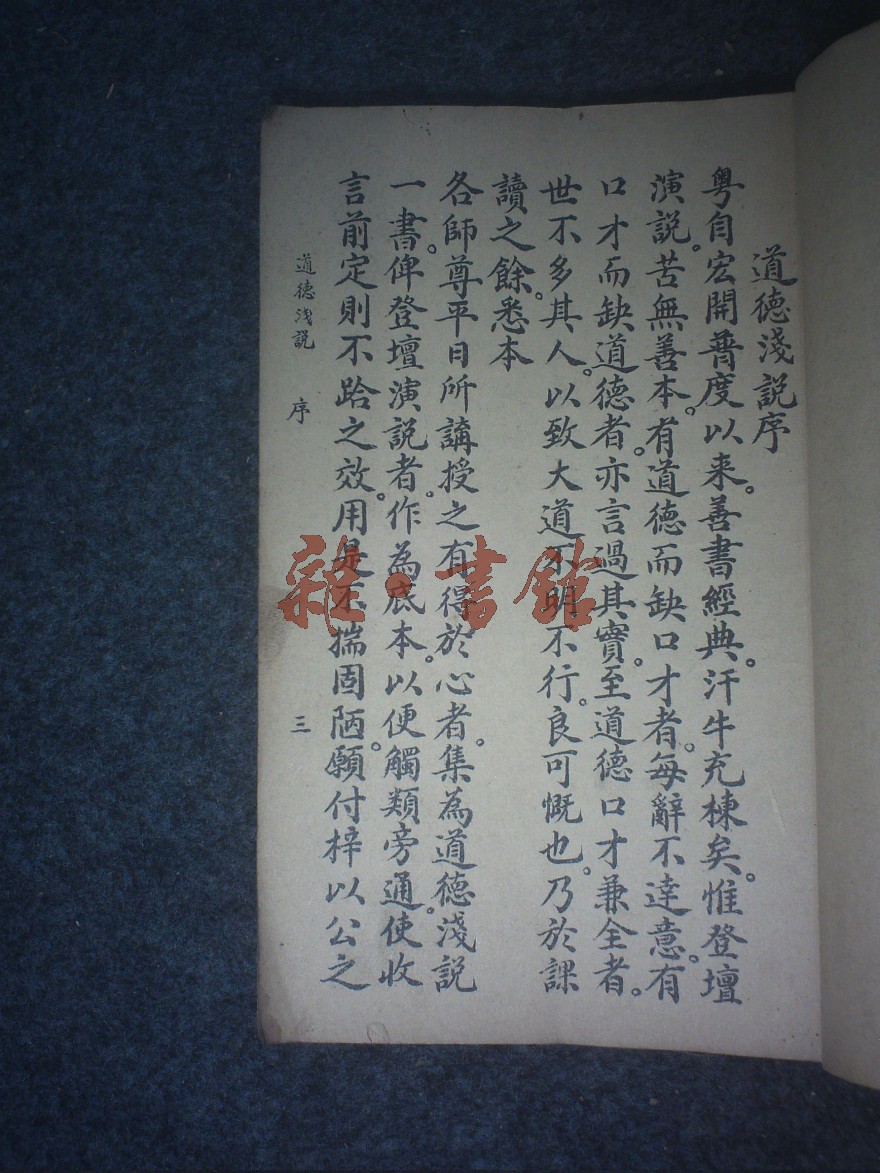 道德淺説序
粤自宏開普度以来。善書經典。汗牛充棟矣。惟登壇
演説。苦無善本。有道德而缺口才者。每辭不達意。有
口才而缺道德者。亦言過其實。至道德口才兼全者。
世不多其人。以致大道不明不行。良可慨也。乃於課
讀之餘。悉本
各師尊平日所講授之有得於心者。集為道德淺説
一書。俾登壇演説者。作為底本。以便觸類旁通。使收
言前定則不跲之效。用是不揣固陋。願付梓以公之
道德浅説 序 三
雜·書館